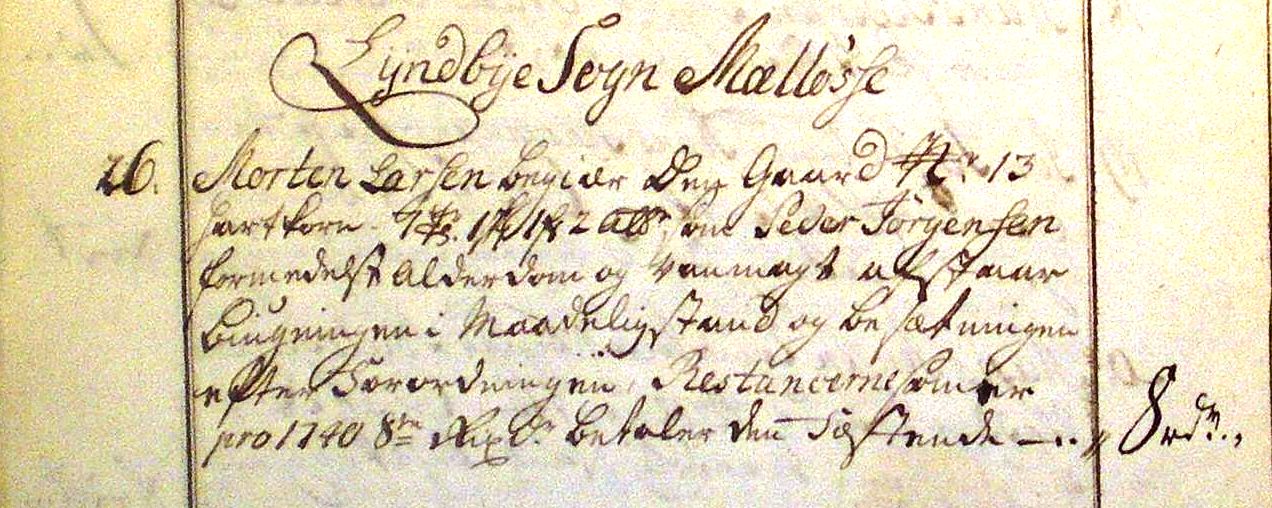 Lyndbye Sogn Mælløsse
26. Morten Larsen begiær den Gaard N. 13
hartkorn 7 td. 1 sk 1 f 2 alb. som Peder Jørgensen
formedelst Alderdom og Vanmagt afstaar
bÿgningen i Maadelig stand og besætningen
efter Forordningen, Restancerne som er
pro 1740 8te Rixdr. betaler den Fæstende — 8 rdr.